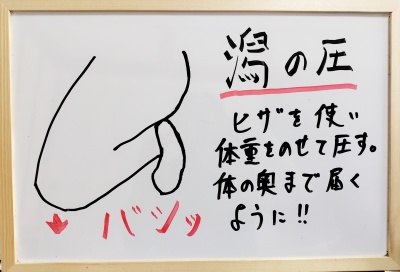 潟の圧
ヒザを使い
体重をのせて圧す。
体の奥まで届く
ように!!
バシッ